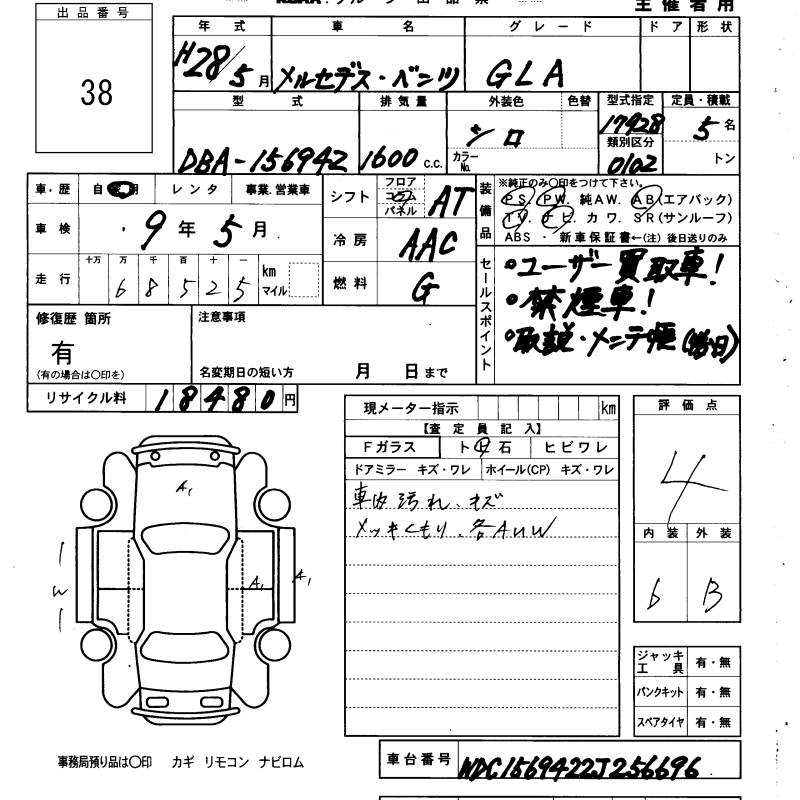 主催者用
出品番号
38
年式 車名 グレード ドア 形状
H28/5月 メルセデス・ベンツ GLA
型式 排気量 外装色 色替 型式指定 定員・積載
DBA-156942 1600 c.c. シロ 17428 5名
カラーNo. 類別区分 0102 トン
車・歴 自 用 レンタ 事業.営業車
車検 9年5月
走行 十万 万 千 百 十 一 km マイル
68525
シフト フロア コラム パネル AT
冷房 AAC
燃料 G
装備品
※純正のみ〇印をつけて下さい。
PS. PW. 純AW. AB(エアバック)
TV. ナビ. カワ. SR(サンルーフ)
ABS ・ 新車保証書←(注) 後日送りのみ
セールスポイント
・ユーザー買取車!
・禁煙車!
・取説・メンテ帳(後日)
修復歴 箇所
有
(有の場合は〇印を)
注意事項
名変期日の短い方 月 日まで
リサイクル料 18480円
現メーター指示 km
【査定員記入】
Fガラス ト 石 ヒビワレ
ドアミラー キズ・ワレ ホイール(CP) キズ・ワレ
車内汚れ、キズ
メッキくもり、各AUW
評価点
4
内装 外装
6 B
A1
A1 A1
W
ジャッキ 工具 有・無
パンクキット 有・無
スペアタイヤ 有・無
事務局預り品は〇印 カギ リモコン ナビロム
車台番号 WDC1569422J256696